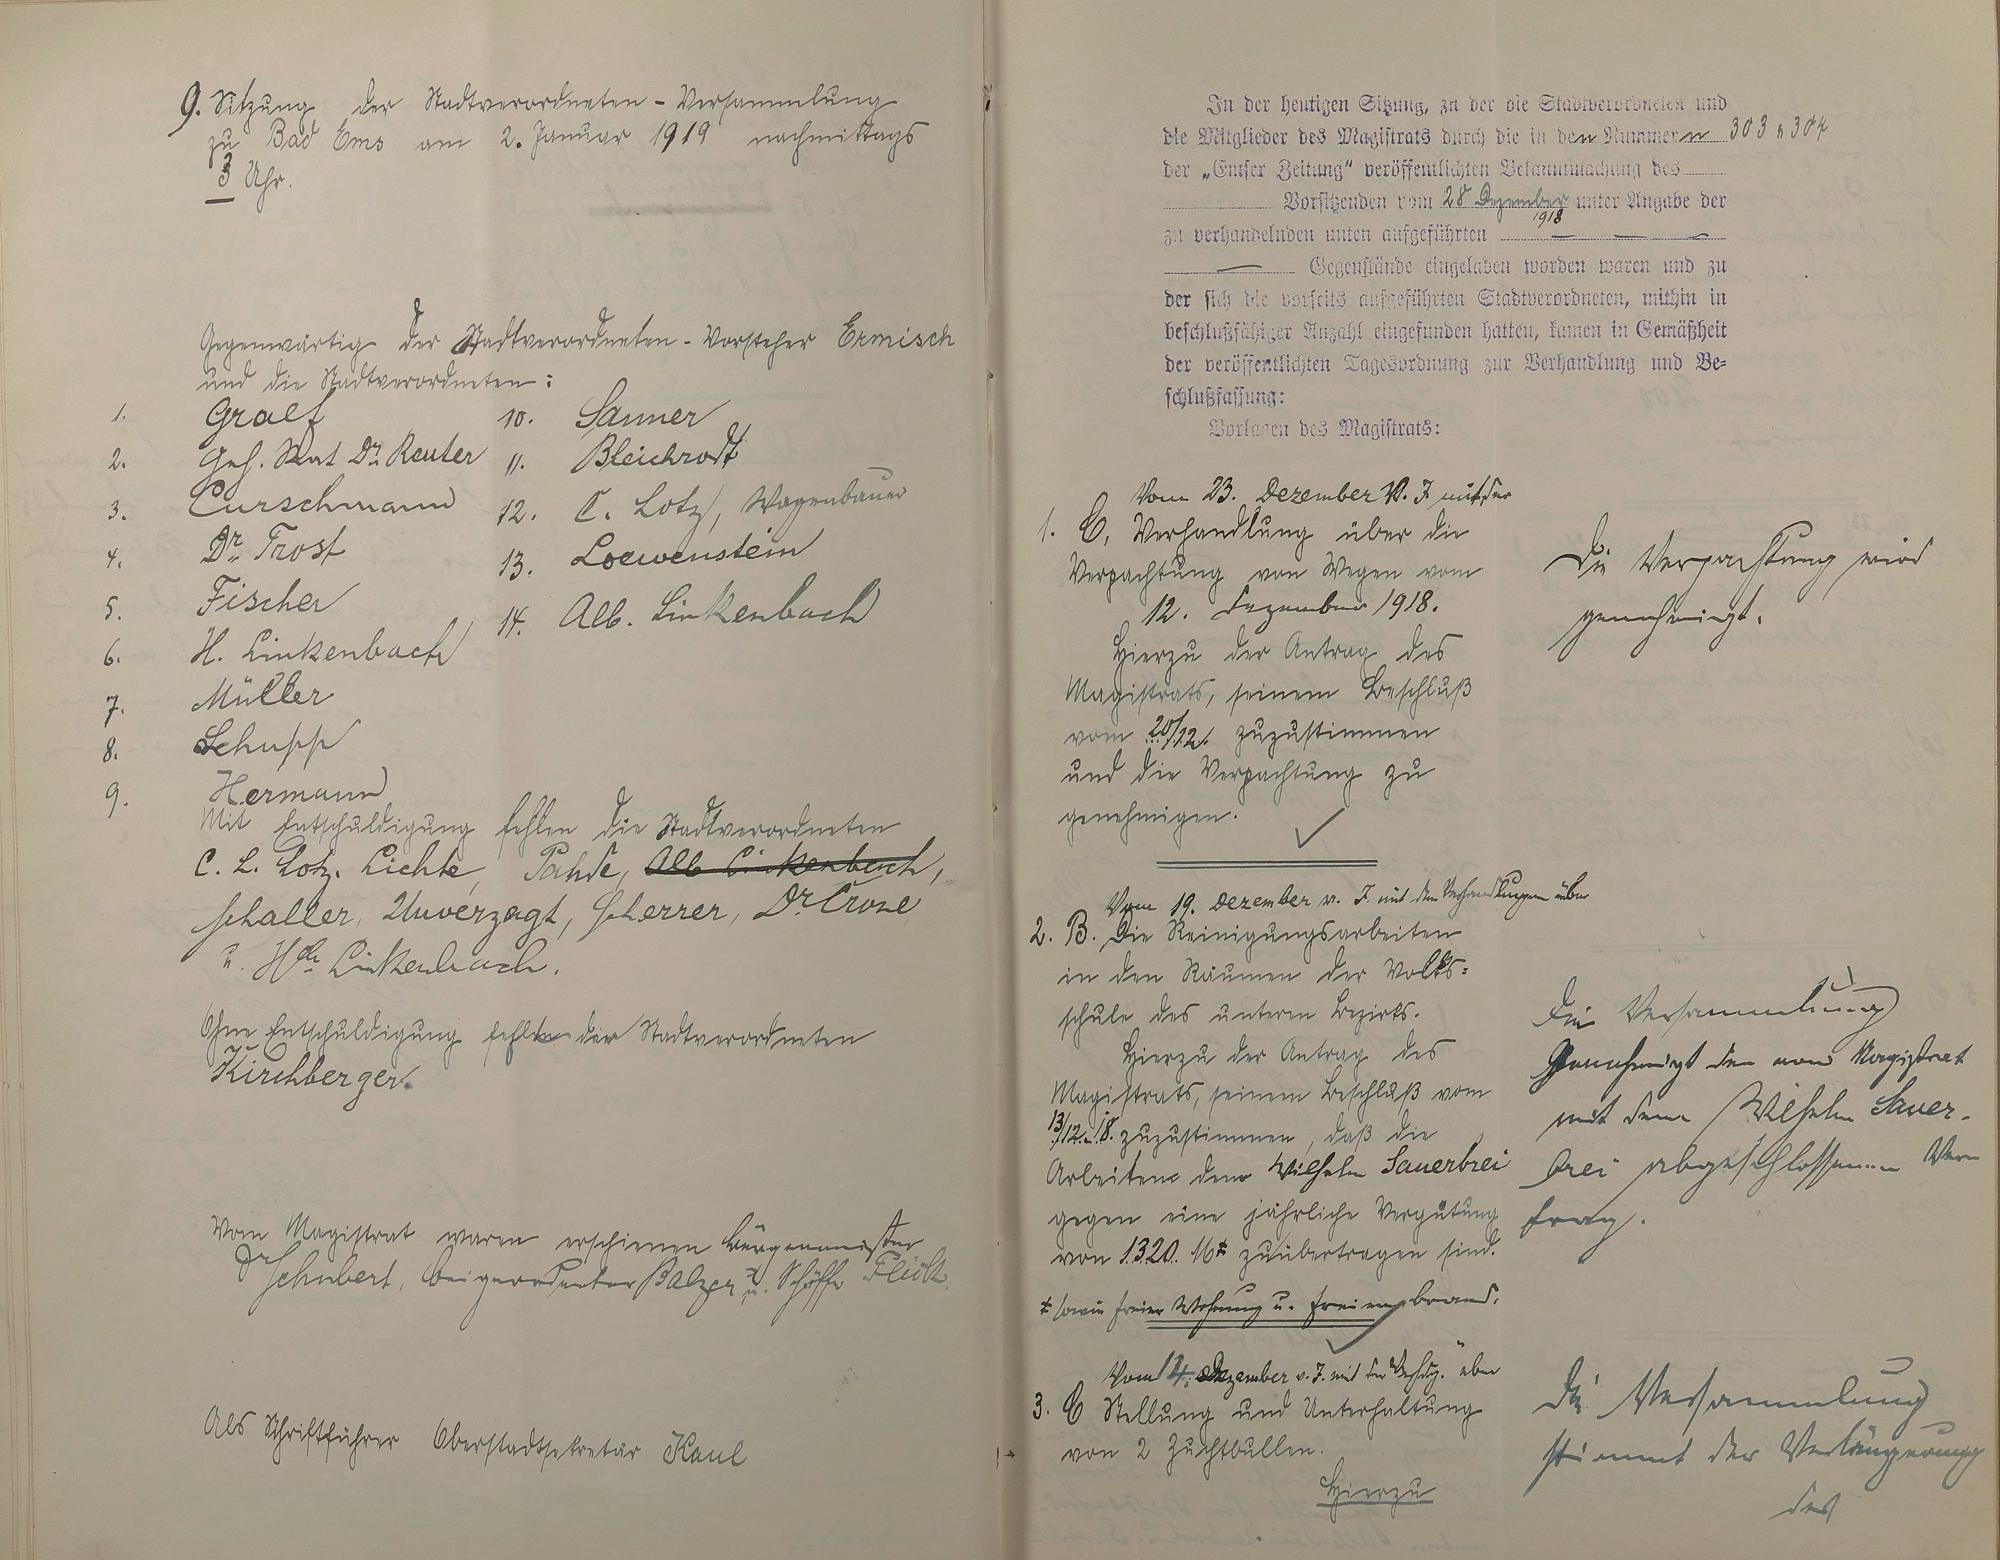 9. Sitzung der Stadtverordneten-Versammlung
zu Bad Ems am 2. Januar 1919 nachmittags
3 Uhr.
Gegenwärtig der Stadtverordneten-Vorsteher Ermisch
und die Stadtverordneten:
1. Graef
2. Geh. Rat Dr. Reuter
3. Curschmann
4. Dr. Trost
5. Fischer
6. H. Linkenbach
7. Müller
8. Schupp
9. Hermann
10. Sanner
11. Bleichrodt
12. C. Lotz, Wagenbauer
13. Loewenstein
14. Alb. Linkenbach
Mit Entschuldigung fehlen die Stadtverordneten
C. L. Lotz. Lichte, Pahde, Alb Linkenbach,
Schaller, Unverzagt, Scherrer, Dr. Crone
u. Hch. Linkenbach.
Ohne Entschuldigung fehlte der Stadtverordneten
Kirchberger.
Vom Magistrat waren erschienen Bürgermeister
Dr Schubert, Beigeordneter Balzer u. Schöffe Flöck
Als Schriftführer Oberstadtsekretär Kaul
In der heutigen Sitzung, zu der die Stadtverordneten und
die Mitglieder des Magistrats durch die in den Nummern 303 u 304
der „Emser Zeitung" veröffentlichten Bekanntmachung des
Vorsitzenden vom 28 Dezember unter Angabe der
1918
zu verhandelnden unten aufgeführten
Gegenstände eingeladen worden waren und zu
der sich die vorseits aufgeführten Stadtverordneten, mithin in
beschlußfähiger Anzahl eingefunden hatten, kamen in Gemäßheit
der veröffentlichten Tagesordnung zur Verhandlung und Be-
schlußfassung:
Vorlagen des Magistrats:
Vom 23. Dezember v. J. mit der
1. C. Verhandlung über die
Verpachtung von Wegen vom
12. Dezember 1918.
Hierzu der Antrag des
Magistrats, seinem Beschluß
vom 20/12. zuzustimmen
und die Verpachtung zu
genehmigen.
Die Verpachtung wird
genehmigt.
Vom 19. Dezember v. J. mit den Verhandlungen über
2. B. Die Reinigungsarbeiten
in den Räumen der Volks=
schule des unteren Bezirks.
Hierzu der Antrag des
Magistrats, seinem Beschluß vom
13/12. 18. zuzustimmen, daß die
Arbeiten dem Wilhelm Sauerbrei
gegen eine jährliche Vergütung
von 1320. M* zuübertragen sind.
* sowie freier Wohnung u. freiem Brand.
Die Versammlung
Genehmigt den vom Magistrat
mit dem Wilhelm Sauer-
brei abgeschlossenen Ver
trag.
Vom 14. Dezember v. J. mit der Verhdg. über
3. C Stellung und Unterhaltung
von 2 Zuchtbullen.
Hierzu
Die Versammlung
stimmt der Verlängerung
des